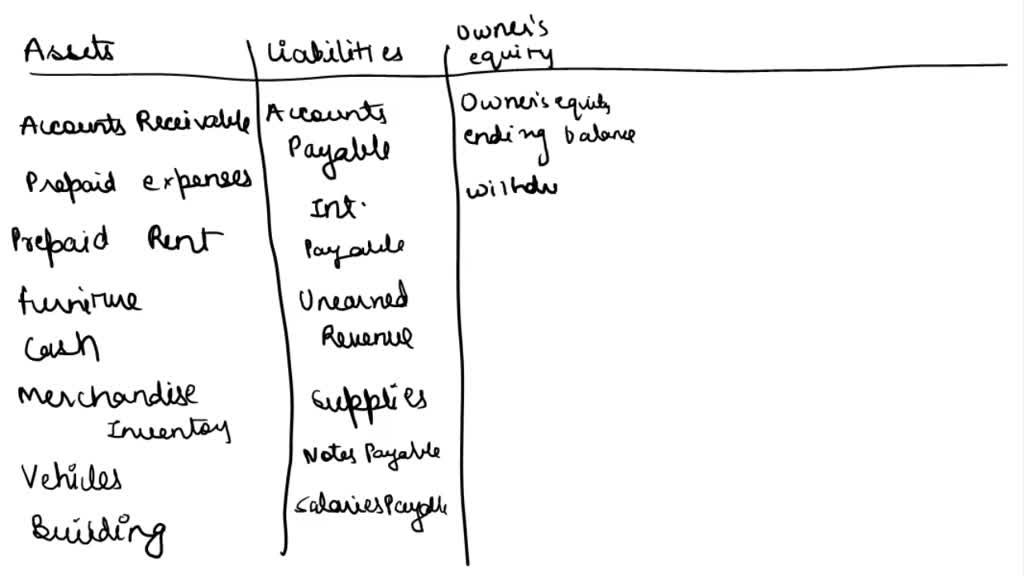 Assets
Accounts Receivable
Prepaid expenses
Prepaid Rent
furniture
Cash
Merchandise
Inventory
Vehicles
Building
Liabilities
Accounts
Payable
Int.
Payable
Unearned
Revenue
Supplies
Notes Payable
Salaries Payable
Owner's
equity
Owner's equity
ending balance